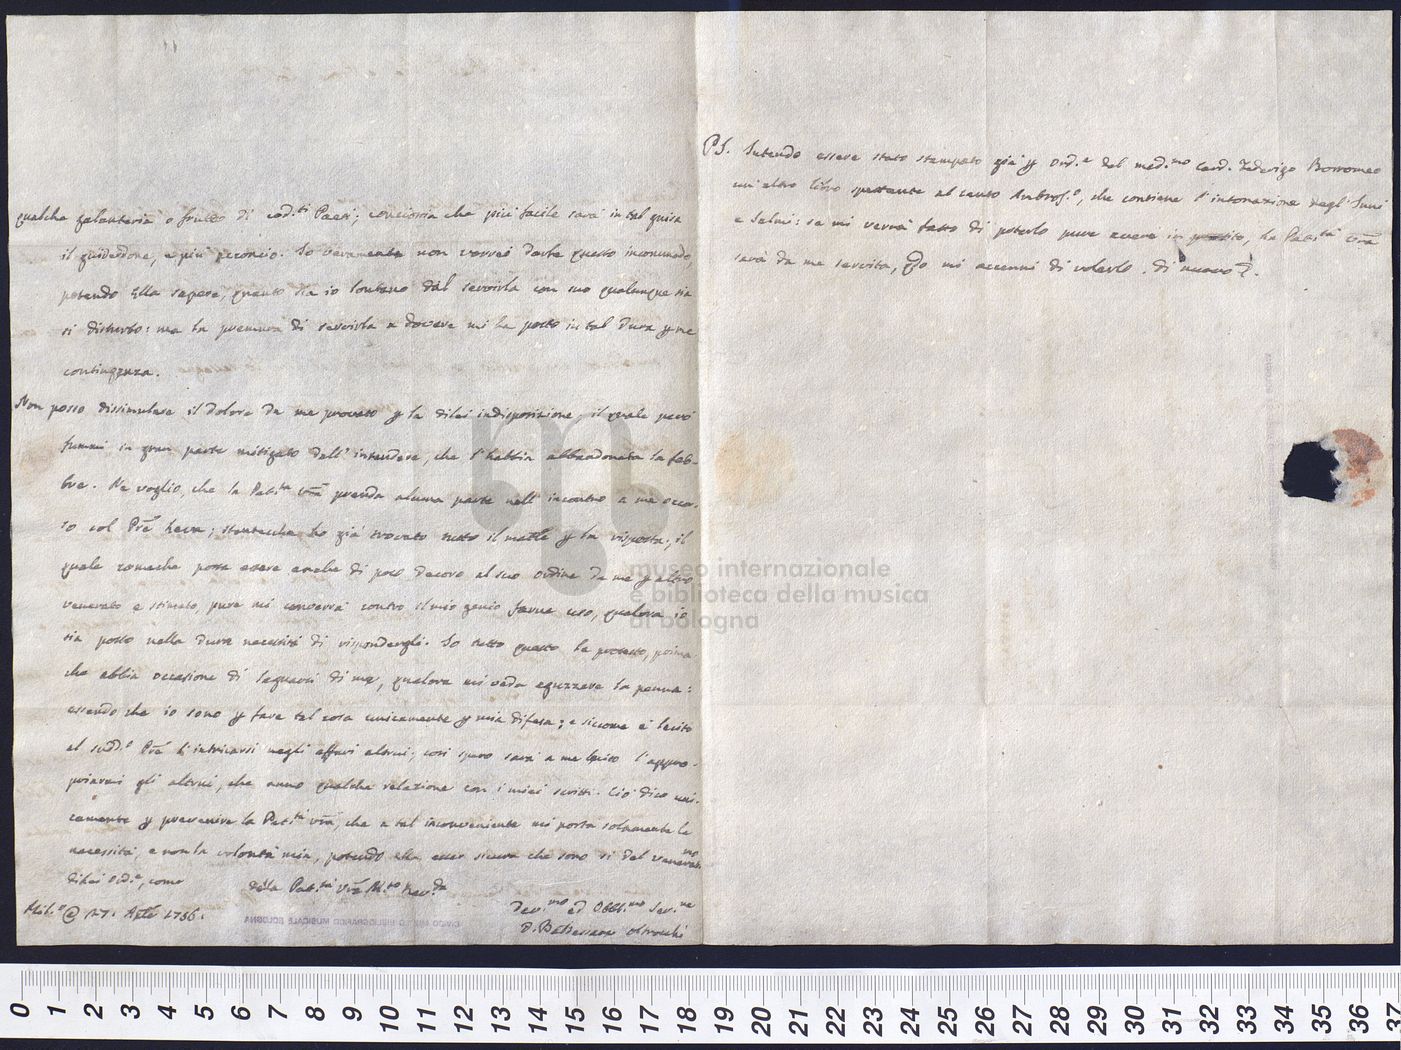 qualche galanteria o frutto di cod.ti Paesi; conciosia che più facile sarà in tal guisa
il guiderdone, e più acconcio. Io veramente non vorrei darle questo incommodo,
potendo Ella sapere, quanto sia io lontano dal servirla con suo qualunque sia
si disturbo: ma la premura di servirla a dovere mi ha posto in tal dura
contingenza.
Non posso dissimulare il dolore da me provato la di lei indisposizione, il quale però
fummi in gran parte mitigato dall' intendere, che l'habbia abbandonata la feb-
bre. Ne voglio, che la Pat.tà vrã prenda alcuna parte nell' incontro a me occor-
so col Prẽ ; stantecche ho già trovato tutto il la risposta, il
quale comeche possa essere anche di poco decoro al suo ordine da me altro
venerato e stimato, pure mi converrà contro il mio genio farne uso, qualora io
sia posto nella dura necessità di rispondergli. Io tutto questo la protesto, prima
che abbia occasione di lagnarsi di me, qualora mi veda aguzzare la penna:
essendo che io sono fare tal cosa unicamente mia difesa; e siccome è lecito
al sudd.o Prẽ l'intricarsi negli affari altrui; così spero sarà a me lecito l'appro-
priarmi gli altrui, che anno qualche relazione con i miei scritti. Ciò dico uni-
camente prevenire la Pat.tà vrã, che a tal inconveniente mi porta solamente la
necessità, e non la volontà mia, potendo ella esser sicura che sono sì del venerat.mo
di lei Ord.e, come della Pat.tà Vrã M.to Rev.da
Mil.o @ 27. 1736.
Dev.mo ed Obbl.mo Ser.re
D. Baldassare Oltrocchi
PS. Intendo essere stato stampato già ord.e del med.mo Card. Federigo Borromeo
un altro libro spettante al canto Ambros.o, che contiene l'intonazione degl' Inni
e Salmi: se mi verrà fatto di poterlo pure avere in , la Pat.tà vrã
sarà da me servita, mi accenni di volerlo. di nuovo
museo internazionale
e biblioteca della musica
di bologna
CIVICO MUSEO BIBLIOGRAFICO MUSICALE BOLOGNA
0 1 2 3 4 5 6 7 8 9 10 11 12 13 14 15 16 17 18 19 20 21 22 23 24 25 26 27 28 29 30 31 32 33 34 35 36 37